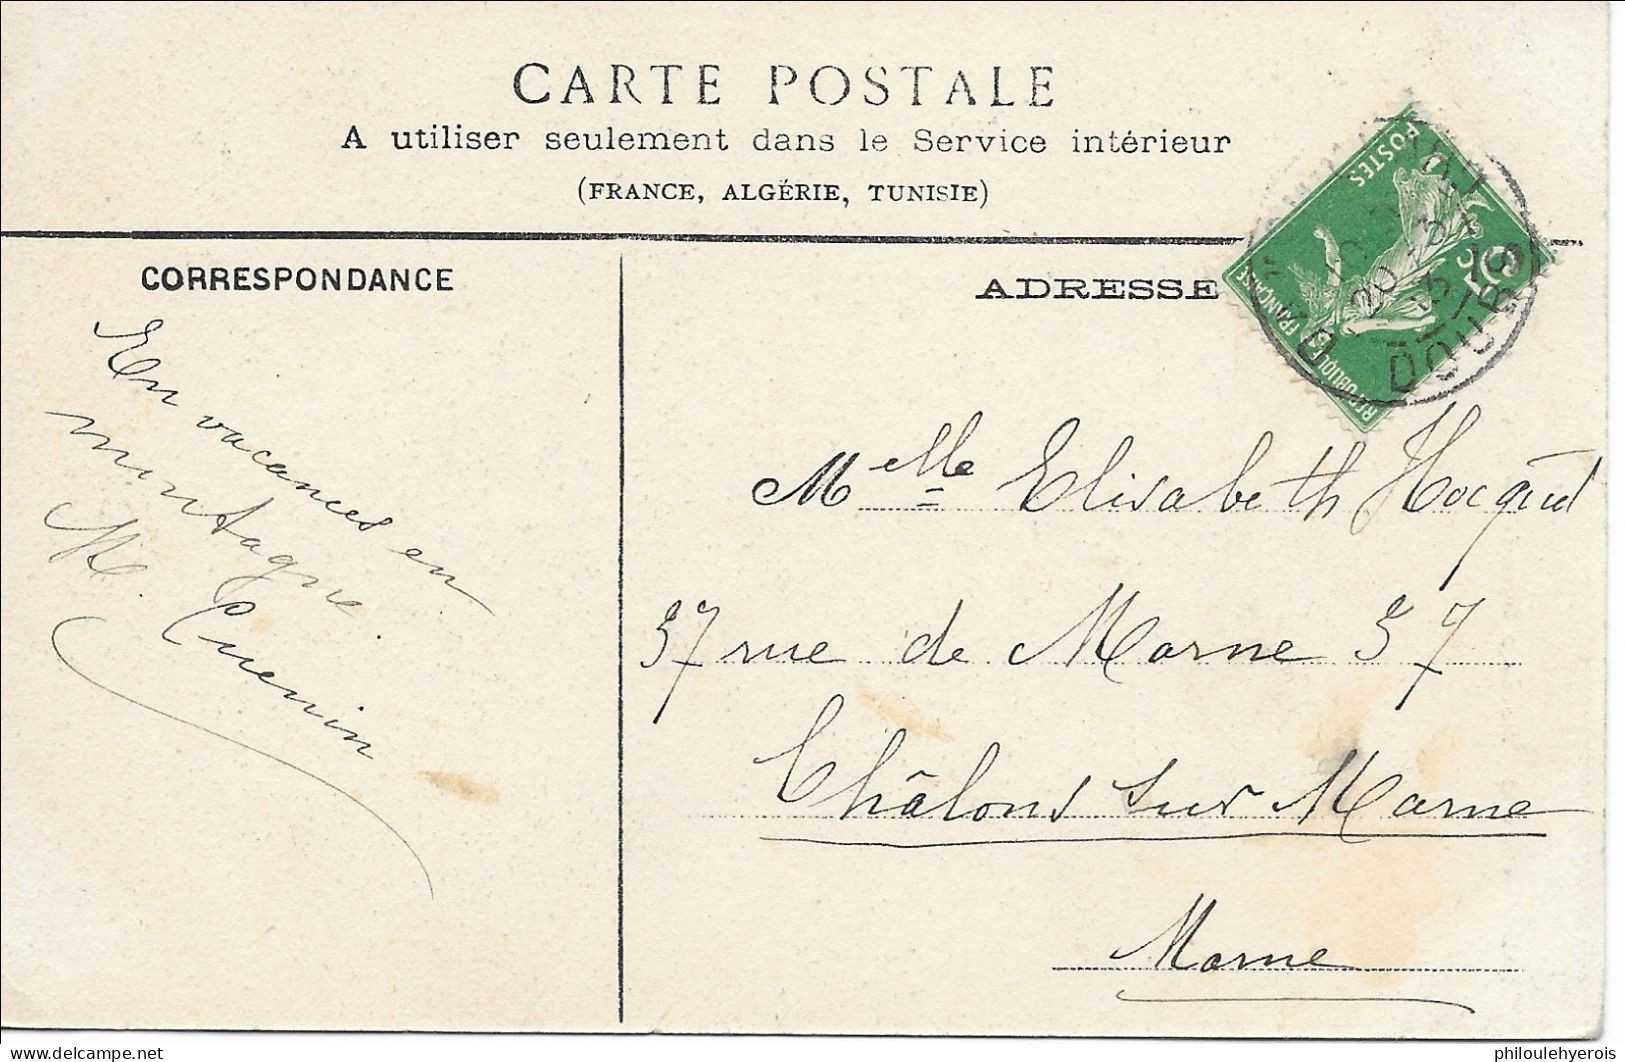 CARTE POSTALE
A utiliser seulement dans le Service intérieur
(FRANCE, ALGÉRIE, TUNISIE)
CORRESPONDANCE
En vacances en
montagne.
M. Cuenin
ADRESSE
POSTES
5c
REPUBLIQUE FRANÇAISE
DOUBS
Melle Elisabeth Hocquel
37 rue de Marne 37
Châlons sur Marne
Marne
delcampe.net
philoulehyerois